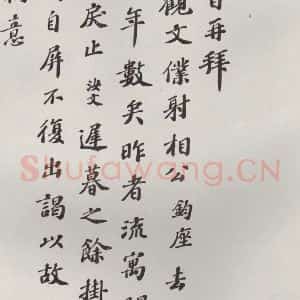 百再拜
觀文僕射相公鈞座去
年數矣昨者流寓
戾止汝文遲暮之餘掛
自屏不復出謁以故
意
Shufawang.CN